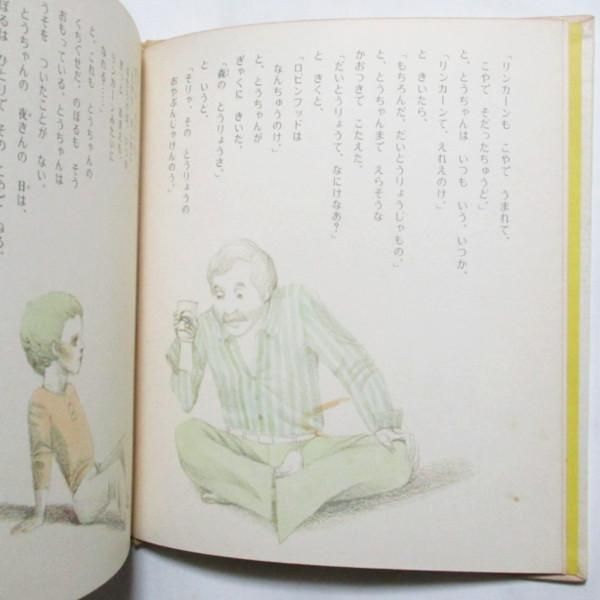 「リンカーンも こやて うまれて、
こやて そだったちゅうど。」
と、とうちゃんは いつも いう。いつか、
「リンカーンて、えれえのけ。」
と きいたら、
「もちろんだ。だいとうりょうじゃもの。」
と、とうちゃんまで えらそうな
かおつきで こたえた。
「だいとうりょうて、なにけなあ?」
と きくと、
「ロビンフッドは
なんちゅうのけ。」
と、とうちゃんが
ぎゃくに きいた。
「森の とうりょうさ。」
と いうと、
「そりゃ、その とうりょうの
おやぶんじゃけんのう。」
なれる……。」
と、これも とうちゃんの
くちぐせだ。のぼるも そう
おもっている。とうちゃんは
うそを ついたことが ない。
とうちゃんの 夜きんの 日は、